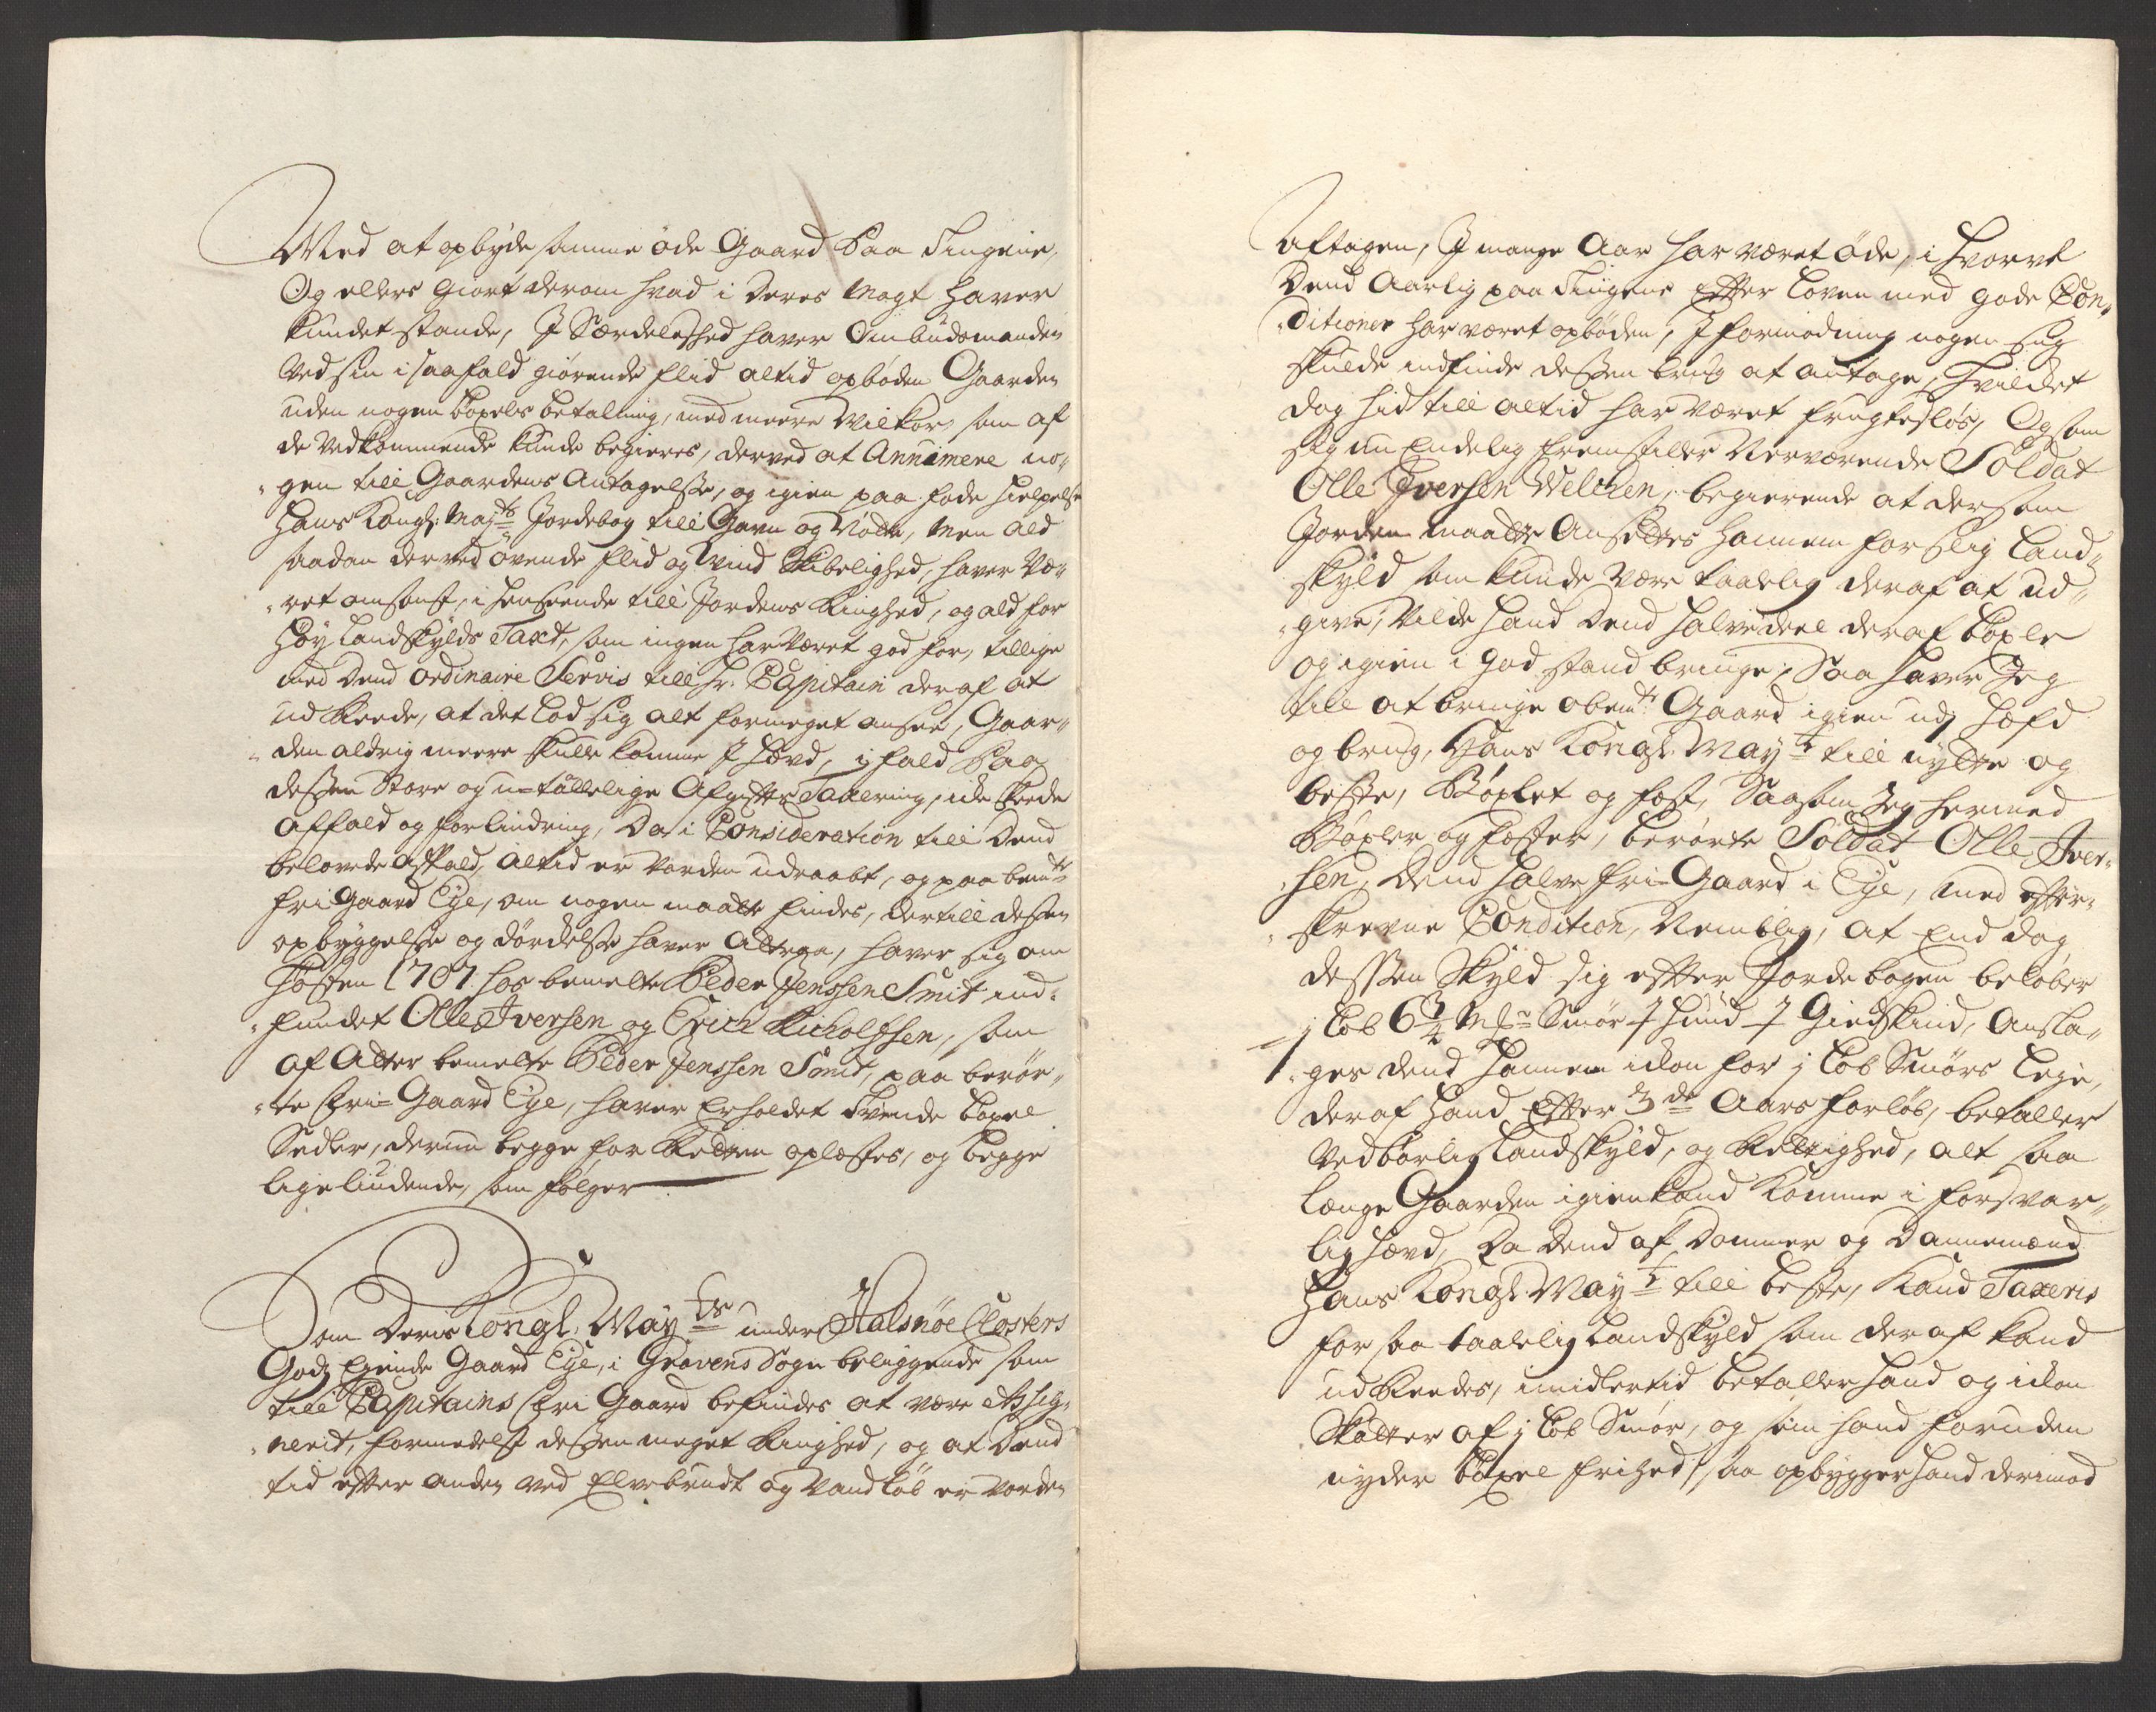 Med at opbyde samme öde Gaard Paa Tingene,
Og ellers giort derom hvad i deres Magt haver
kundet stande, J Særdeleshed haver Ombudsmanden
Ved sin i saafald giörende flid altid opböden Gaarden
uden nogen böxels betalning, med meere Wilkor, som af
de Vedkommende kunde begieres, derved at Annimere no„
„gen till Gaardens Antagelse, og igien paa fode hielpelse
Hans Kongl: May:ts Jordebog till Gavn og Nötte, Men ald
saadan derved övende flid og Vind Skibelighed, haver Væ„
„ret omsonst, i henseende till Jordens Ringhed, og ald for
höy Landskylds Taxt, som ingen har Været god for, tillige
med Dend ordinaire Servis till hr. Capitain deraf at
ud Reede, at det lod sig alt formeget ansee, Gaar„
„den aldrig meere skulle komme J hævd, i fald Paa
dessen Store og u=taallelige Afgifts Taxering, icke skeede
Affald og forlindring, Da i Consideration till Dend
belovede Affald, altid er Vorden udraabt, og paa bem:te
fri Gaard Eye, om nogen maatte findes, dertill dessen
opbyggelse og dördelse haver Attraa, haver sig om
Hösten 1707 hos bemelte Peder Jenssen Smit ind„
„fundet Olle Iversen og Erich Nicholssen, som
af Atter bemelte Peder Jenssen Smit, paa berör„
„te fri= Gaard Eye, haver Erholdet Tvende böxel
Sedler, derum begge for Retten oplæstes, og begge
lige liudende, som fölger
Som Deris Kongl: May:ts under Halsnöe Closters
Godz Eyende Gaard Eye, i Gravens Sogn beliggende som
till Capitains fri Gaard befindes at være Assig„
„nerit, formedelst dessen meget Ringhed, og at Dend
tid efter anden ved Elvebrudt og Vandlöb er vorden
aftagen, J mange Aar har været öde, i hvorvel
Dend Aarlig paa Tingene Efter Loven med gode Con„
„ditioner har været opböden, J formodning nogen sig
skulde indfinde dessen brug at antage, hvilcket
dog hid till altid har været frugteslös, Og som
sig nu Endelig fremstiller Nærværende Soldat
Olle Iversen Velken, begierende at dersom
Jorden maatte Ansettes hannem for slig Land„
skyld som kunde være taalelig deraf at ud„
„give, Vilde hand Dend halve deel deraf böxle
og igien i god stand bringe, Saa haver Jeg
till at bringe obem:te Gaard igien udj hæfd
og brug, Hans Kongl: May:ts till nytte og
beste, Böxlet og fæst, Saasom Jeg hermed
Böxler og fæster, berörte Soldat Olle Iver„
„sen, Dend halve fri= Gaard i Eye, med efter„
„skrevne Condition, Nemblig, at End dog
dessen Skyld sig efter Jordebogen belöber
j Löb 6 3/4 Mrk: Smör ‡ hud ‡ Giedskind, Ansla„
„ges dend hannem icke for j Löb Smörs Leye,
deraf hand Efter 3de Aars forlöb, betaller
Vedbörlig Landskyld, og Rettighed, alt saa
længe Gaarden igien kand komme i forsvar„
lig hævd, Da Dend af Dommer og Dannemænd
Hans Kongl: May:ts till beste, kand Taxeris
for saa taalelig Landskyld som deraf kand
udReedes, imidlertid betaller hand og icke
Skatter af j Löb Smör, og som hand foruden
nyder böxel frihed, saa opbygger hand derimod